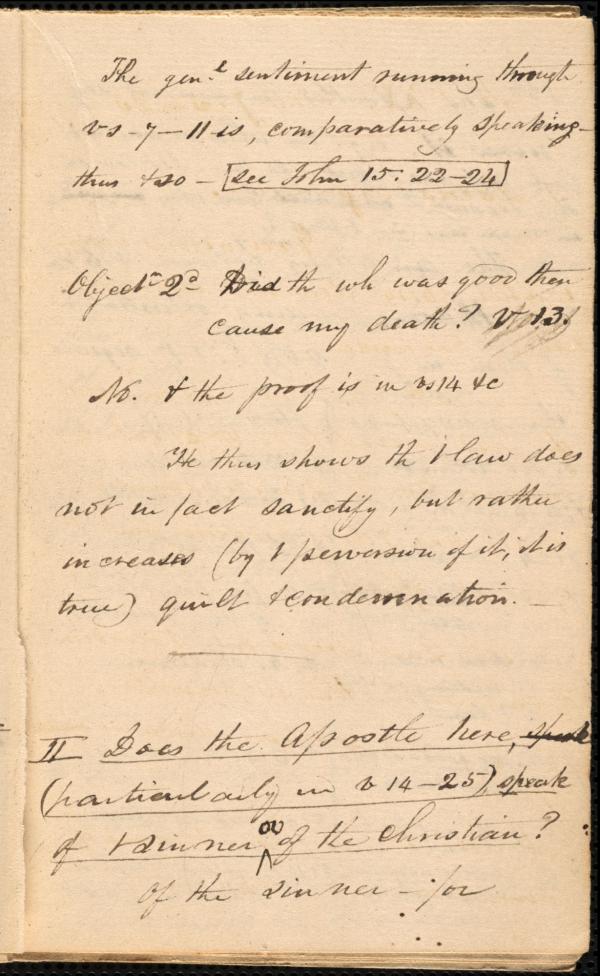 The genl. sentiment running through
vs-7-11-is, comparatively speaking-
thus & so - see John 15: 22-24
Object'n 2d Did th wh was good then
cause my death? V 13.
No. & the proof is in vs 14 &c
He thus shows th t law does
not in fact sanctify, but rather
increases (by t perversion of it, it is
true) guilt & condemnation. -
II Does the Apostle here, speak
(particularly in v 14-25), speak
of t sinner or of the Christian?
Of the sinner - for